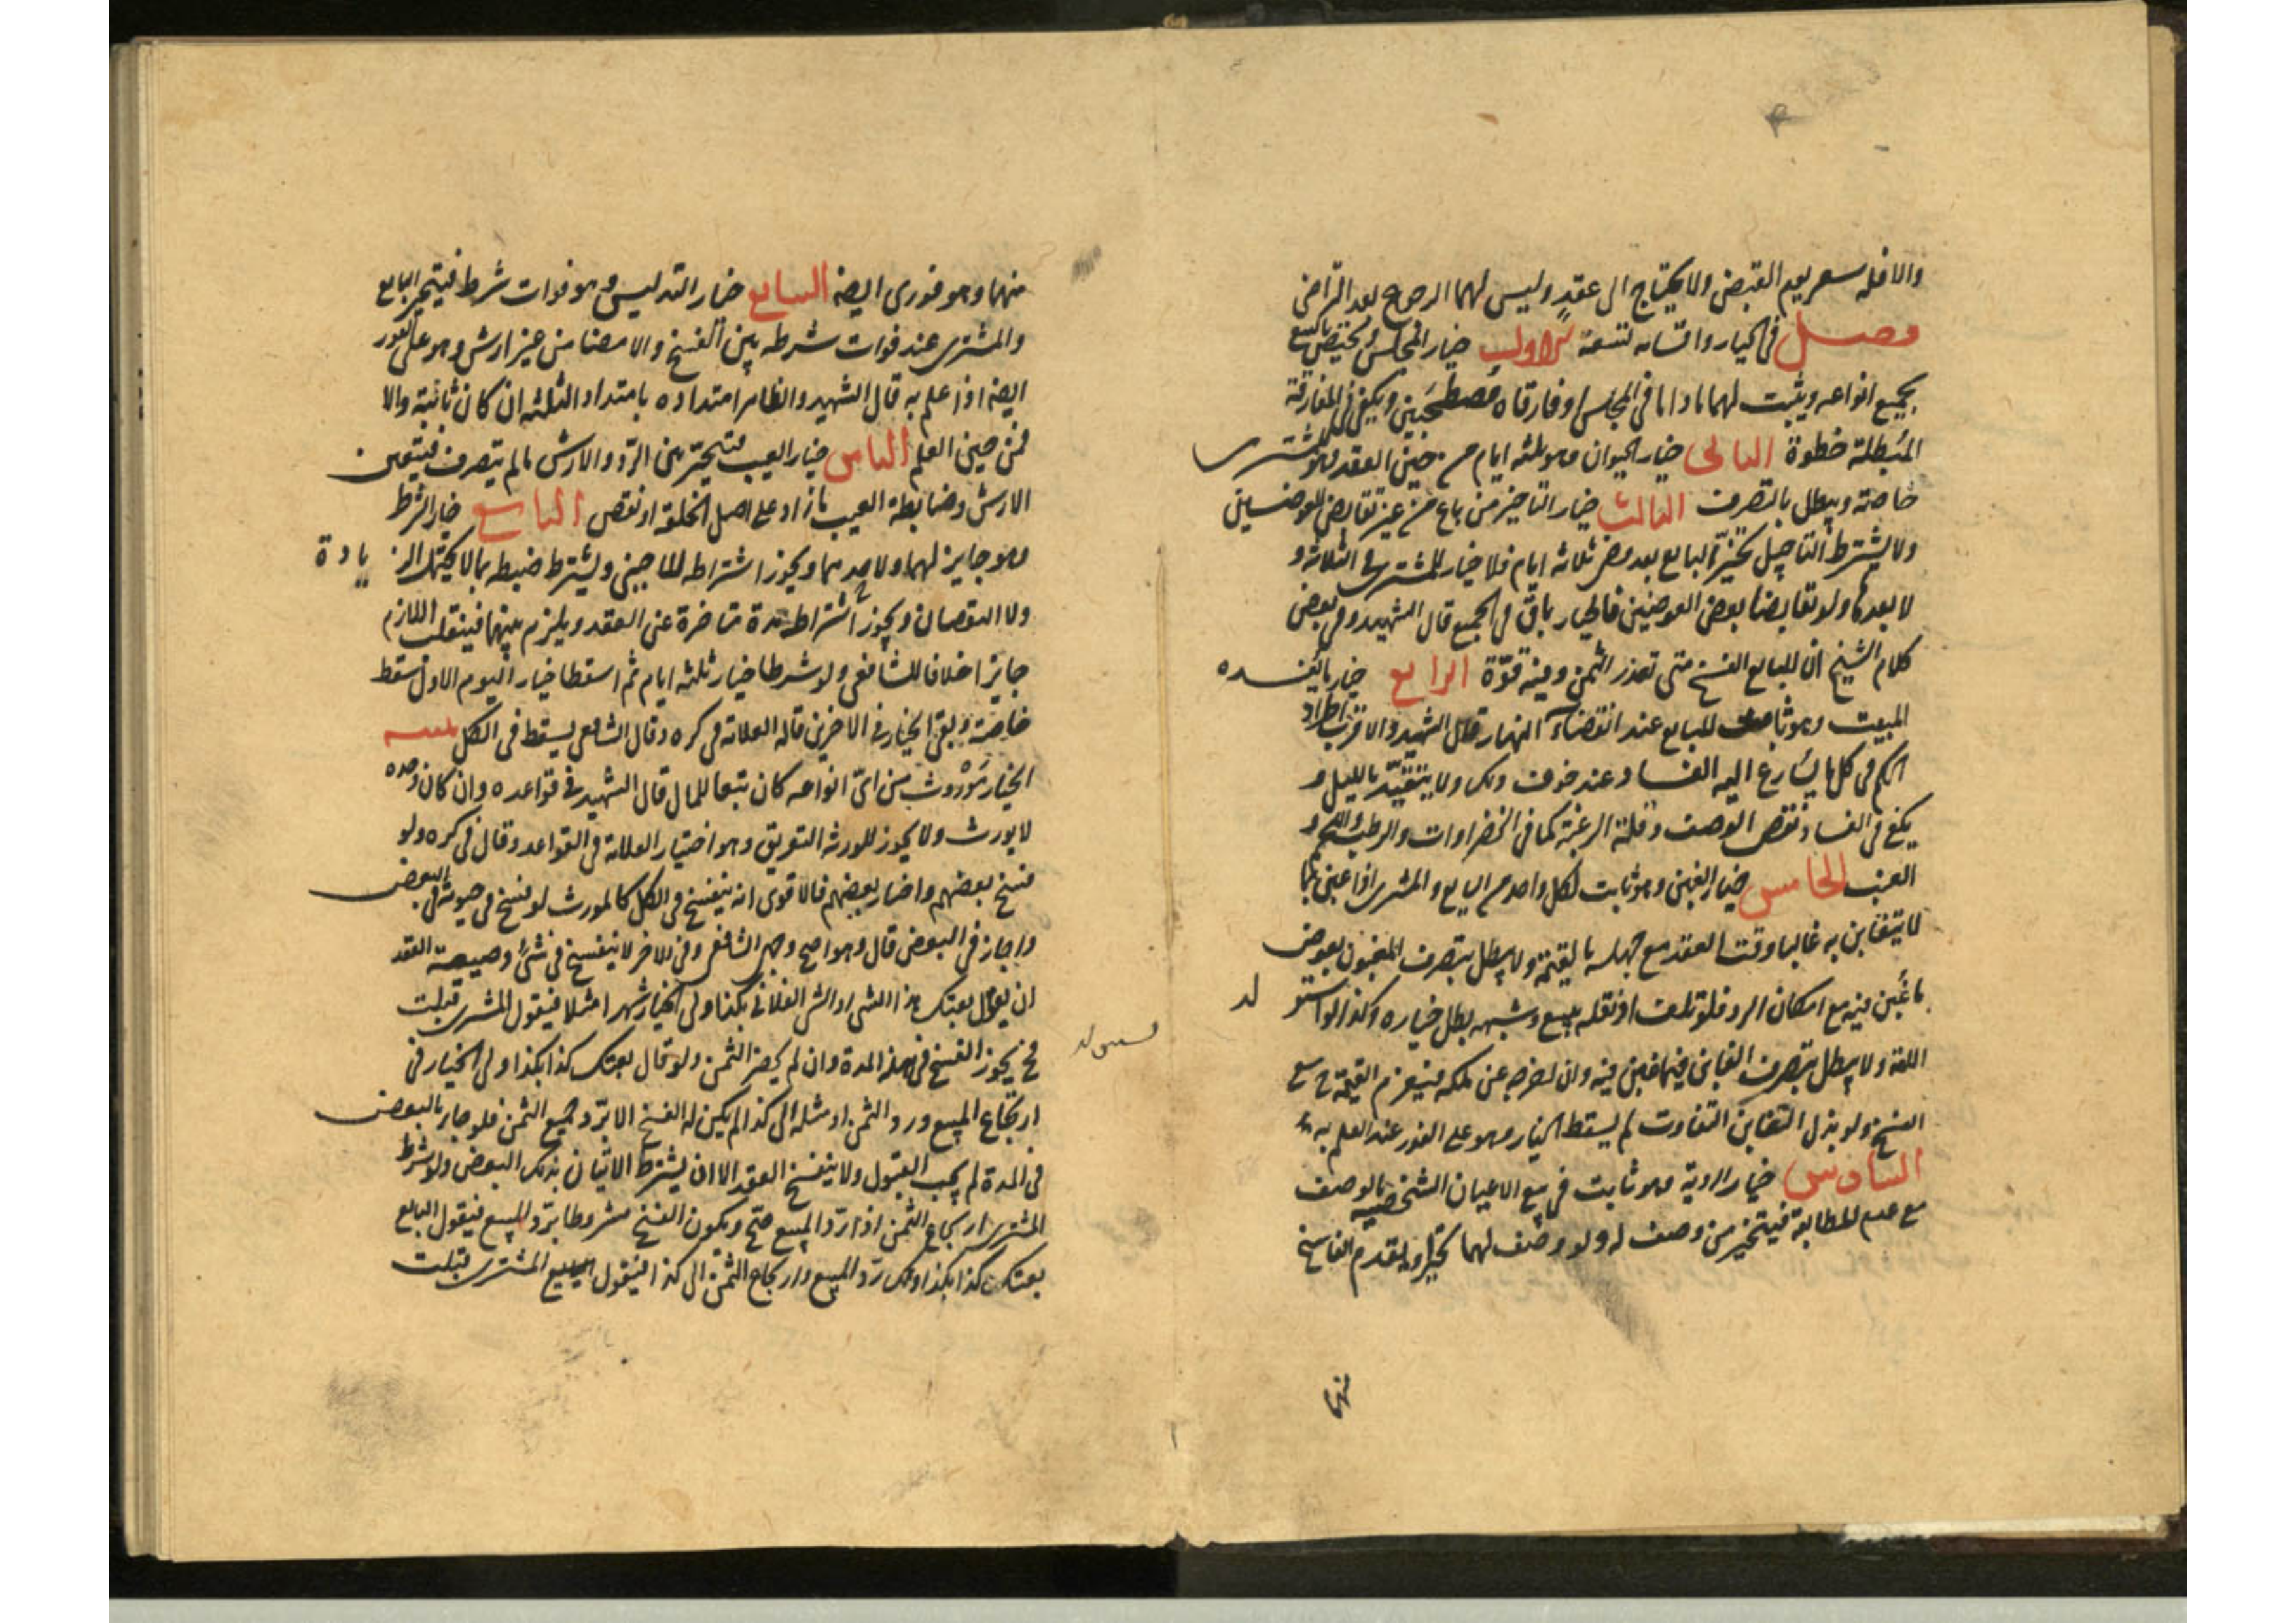 والا فله سعر يوم القبض ولا يحتاج الى عقد وليس لهما الرجوع بعد التراضى
فصل فى الخيار واقسامه تسعة الاول خيار المجلس ويختص بالبيع
بجميع انواعه ويثبت لهما ما داما فى المجلس او فارقاه مصطحبين ويكفى فى المفارقة
المبطلة خطوة الثانى خيار الحيوان وهو ثلثه ايام من حين العقد وهو للمشترى
خاصة ويبطل بالتصرف الثالث خيار التاخير من باع من غير تقابض العوضين
ولا يشترط التاجيل تخير البايع بعد مضى ثلاثه ايام فلا خيار للمشترى فى الثلاثه و
لا بعدها ولو تقابضا بعض العوضين فالخيار باق فى الجميع قال الشهيد وفى بعض
كلام الشيخ ان للبايع الفسخ متى تعذر الثمن وفيه قوّة الرابع خيار ما يفسده
المبيت وهو ثابت للبايع عند انقضاء النهار قال الشهيد والاقرب اطراد
الحكم فى كل ما يسارع اليه الفساد عند خوف ذلك ولا يتقيّد بالليل و
يكفى فى الفساد نقص الوصف وقلة الرغبة كما فى الخضراوات والرطب واللحم و
العنب الخامس خيار الغبن وهو ثابت لكل واحد من البايع والمشترى اذا غبن بما
لا يتغابن به غالبا وقت العقد مع جهله بالقيمة ولا يبطل بتصرف المغبون بعوض
ما غُبن فيه مع امكان الرد فلو تلف او نقله ببيع وشبهه بطل خياره وكذا لو استولد
الامة ولا يبطل بتصرف الغابن فيما غبن فيه وان اخرجه عن ملكه فيغرم القيمة ح مع
الفسخ ولو بذل الغابن التفاوت لم يسقط الخيار وهو على الفور عند العلم به
السادس خيار الروية وهو ثابت فى بيع الاعيان الشخصية بالوصف
مع عدم المطابقة فيتخير من وصف له ولو وصف لهما تخيرا ويقدم الفاسخ
منهما
منهما وهو فورى ايضه السابع خيار التدليس وهو فوات شرط فيتخير البايع
والمشترى عند فوات شرطه بين الفسخ والامضا من غير ارش وهو على الفور
ايضه اذا علم به قال الشهيد والظاهر امتداده بامتداد الثلثه ان كان ثابتة والا
فمن حين العلم الثامن خيار العيب فيتخير بين الرد والارش ما لم يتصرف فيتعين
الارش وضابطة العيب ما زاد على اصل الخلقة او نقص التاسع خيار الشرط
وهو جايز لهما ولاحدهما ويجوز اشتراطه للاجنبى ويشترط ضبطه بما لا يحتمل الزيادة
ولا النقصان ويجوز اشتراط مدة متاخرة عن العقد ويلزم بينهما فينقلب اللازم
جايزا خلافا للشافعى ولو شرطا خيار ثلثه ايام ثم اسقطا خيار اليوم الاول سقط
خاصة وبقى الخيار فى الاخرين قاله العلامة فى كره وقال الشافعى يسقط فى الكل
الخيار موروث من اىّ انواعه كان تبعا للمال قال الشهيد فى قواعده وان كان وحده
لا يورث ولا يجوز للورثه التفريق وهو اختيار العلامة فى القواعد وقال فى كره ولو
فسخ بعضهم واختار بعضهم فالاقوى انه ينفسخ فى الكل كالمورث لو فسخ فى حيوته فى البعض
واجاز فى البعض قال وهو اصح وجهى الشافعى وفى الاخر لا ينفسخ فى شئ وصيغة العقد
ان يقول بعتك هذا الشى او الشى الفلانى بكذا ولى الخيار شهرا مثلا فيقول المشترى قبلت
فح يجوز الفسخ فى هذه المدة وان لم يحضر الثمن ولو قال بعتك كذا بكذا ولى الخيار فى
ارتجاع المبيع ورد الثمن او مثله الى كذا لم يكن له الفسخ الا برد جميع الثمن فلو جاء بالبعض
فى المدة لم يجب القبول ولا ينفسخ العقد الا ان يشترط الاتيان بذلك البعض ولو شرط
المشترى ارتجاع الثمن اذا رد المبيع صح ويكون الفسخ مشروطا برد المبيع فيقول البايع
بعتك كذا بكذا ولك رد المبيع وارتجاع الثمن الى كذا فيقول المشترى قبلت